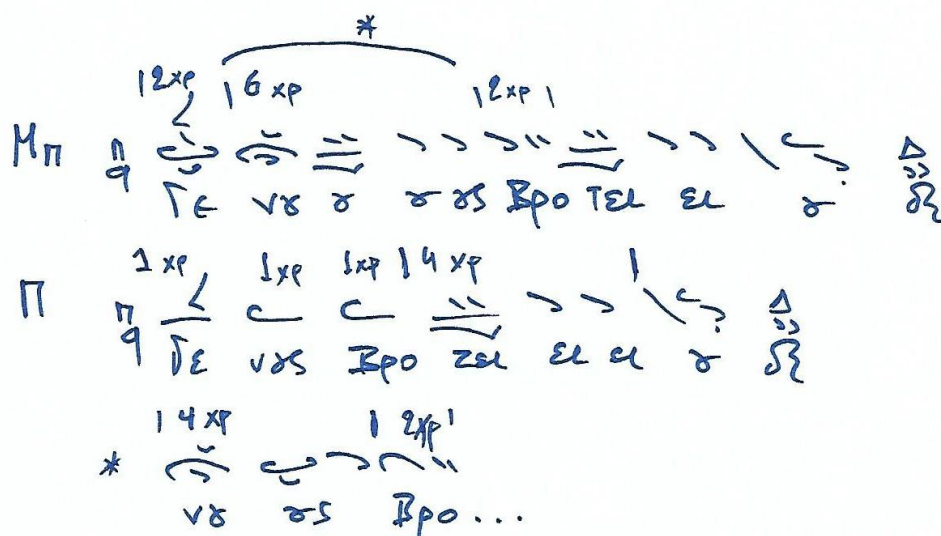 *
|2χρ |6χρ |2χρ|
Μπ π q Δ
Γε νȣ ȣ ȣ ȣς Βρο τει ει ȣ
1χρ 1χρ 1χρ |4χρ |
Π π q Δ
Γε νȣς Βρο τει ει ει ȣ
|4χρ | 2χρ|
*
νȣ ȣς Βρο...